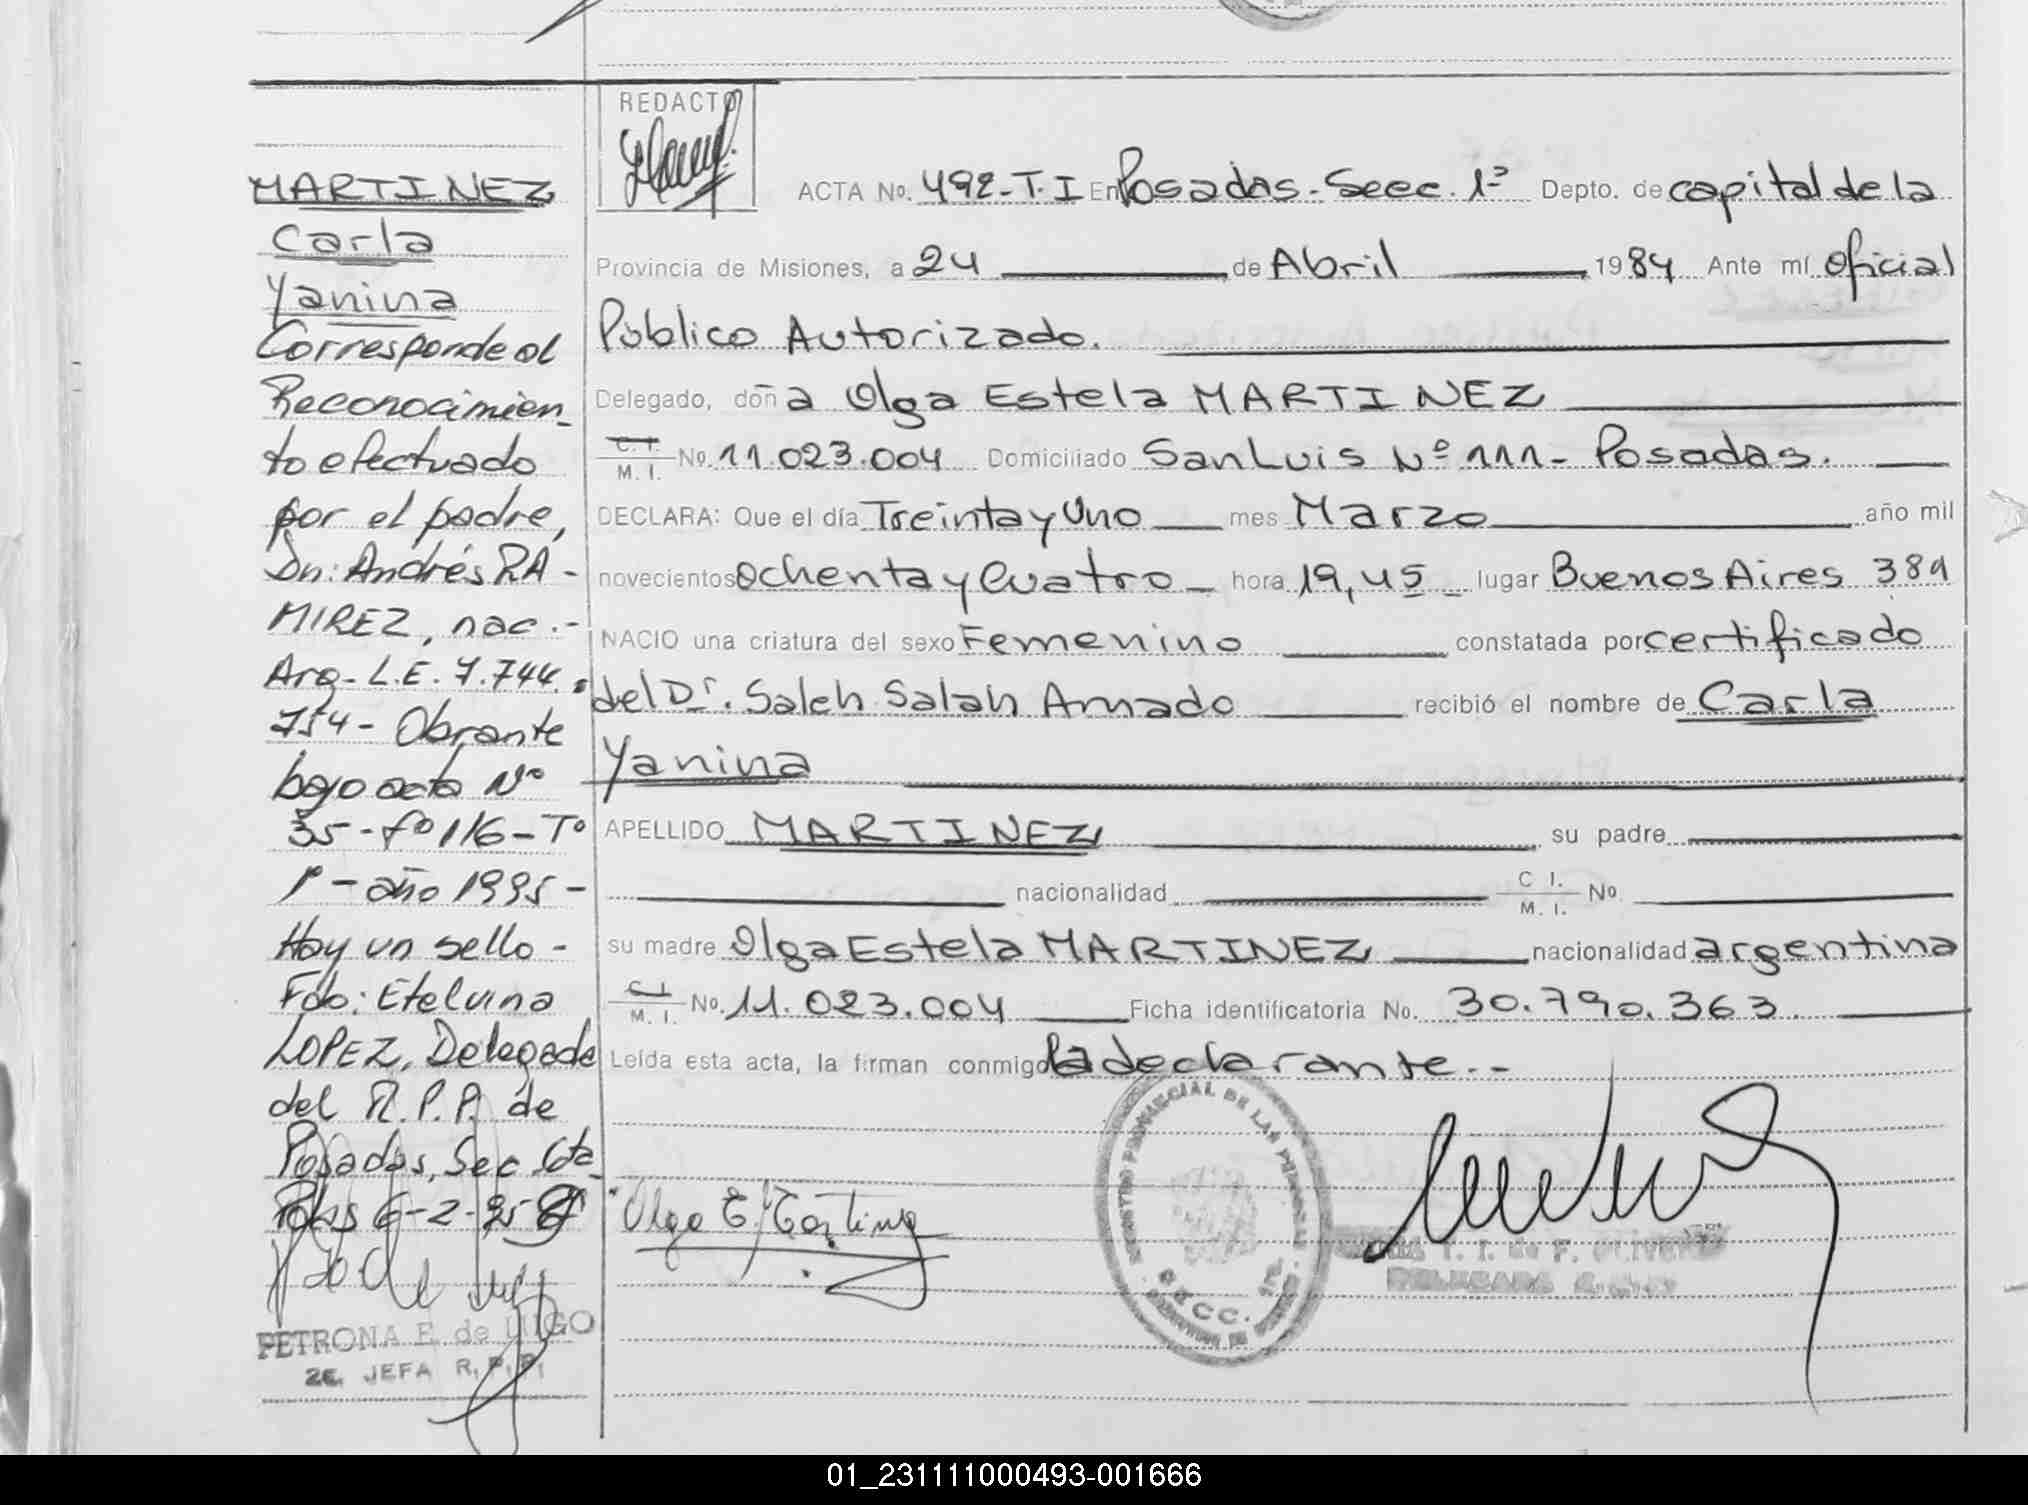 MARTINEZ
Carla
Yanina
Corresponde al
Reconocimien_
to efectuado
por el padre,
Dn: Andrés RA-
MIREZ, nac.-
Arg- L.E. 7.744.
754- Obrante
bajo acta Nº
35-fº116-Tº
1º-año 1995-
Hay un sello-
Fdo: Etelvina
LOPEZ, Delegada
del R.P.P. de
Posadas, Sec. 6ta_
Pdas 6-2-95
PETRONA E. de
2E. JEFA R.P.P.
REDACTO
ACTA No. 492-T.I En Posadas.-Secc. 1ª Depto. de capital de la
Provincia de Misiones, a 24 de Abril 1984 Ante mí oficial
Público Autorizado.
Delegado, doña Olga Estela MARTINEZ
C.I. / M.I. No. 11.023.004 Domiciliado San Luis Nº 111- Posadas.
DECLARA: Que el día Treinta y Uno mes Marzo año mil
novecientos ochenta y Cuatro hora 19,45 lugar Buenos Aires 389
NACIO una criatura del sexo Femenino constatada por certificado
del Dr. Saleh Salah Amado recibió el nombre de Carla
Yanina
APELLIDO MARTINEZ su padre
nacionalidad C I. / M. I. No.
su madre Olga Estela MARTINEZ nacionalidad argentina
C.I. / M. I. No. 11.023.004 Ficha identificatoria No. 30.790.363
Leída esta acta, la firman conmigo la declarante.-
REGISTRO PROVINCIAL DE LAS PERSONAS
Olga E. Martinez
01_231111000493-001666